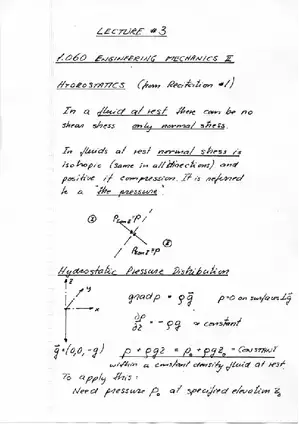 LECTURE #3
1.060 ENGINEERING MECHANICS II
HYDROSTATICS (from Recitation #1)
In a fluid at rest there can be no
shear stress only normal stress.
In fluids at rest normal stress is
isotropic (same in all directions) and
positive if compression. It is referred
to as "the pressure".
①
②
Hydrostatic Pressure Distribution
z
y
x
grad p = ρg⃗
p=0 on surfaces ⊥g⃗
∂p/∂z = -ρg ≈ constant
g⃗=(0,0,-g)
p + ρgz = p₀ + ρgz₀ = CONSTANT
within a constant density fluid at rest.
To apply this:
Need pressure p₀ at specified elevation z₀